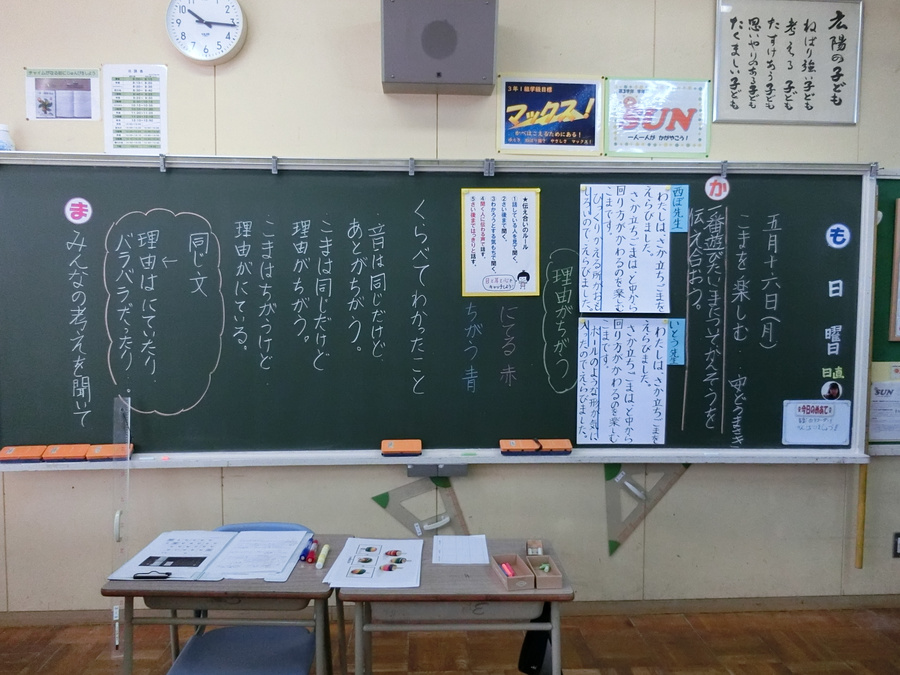 広陽の子ども
ねばり強い子ども
考える子ども
たすけあう子ども
思いやりのある子ども
たくましい子ども
3年1組学級目標
マックス!
かべはこえるためにある!
SUN
一人一人が かがやこう!
も
日
曜日
日直
今日のめあて
五月十六日(月)
こまを楽しむ
か
一番遊びたいこまについてかんそうを
伝え合おう。
西ぼ先生
わたしは、さか立ちごまを
えらびました。
さか立ちごまは、と中から
回り方がかわるのを楽しむ
こまです。
ひっくりかえる所がおも
しろいのでえらびました。
いとう先生
わたしは、さか立ちごまを
えらびました。
さか立ちごまは、と中から
回り方がかわるのを楽しむ
こまです。
ボールのような形が気に
入ったのでえらびました。
理由がちがう
★伝え合いのルール
①話している人を見て聞く。
②さい後まで聞く。
③わかろうとする気もちで聞く。
④聞く人に伝わる声で話す。
⑤さい後まではっきりと話す。
にてる 赤
ちがう 青
くらべてわかったこと
・音は同じだけど
あとがちがう。
・こまは同じだけど
理由がちがう。
・こまはちがうけど
理由がにている。
同じ文
↓
理由はにていたり
バラバラだったり
ま
みんなの考えを聞いて
SUN